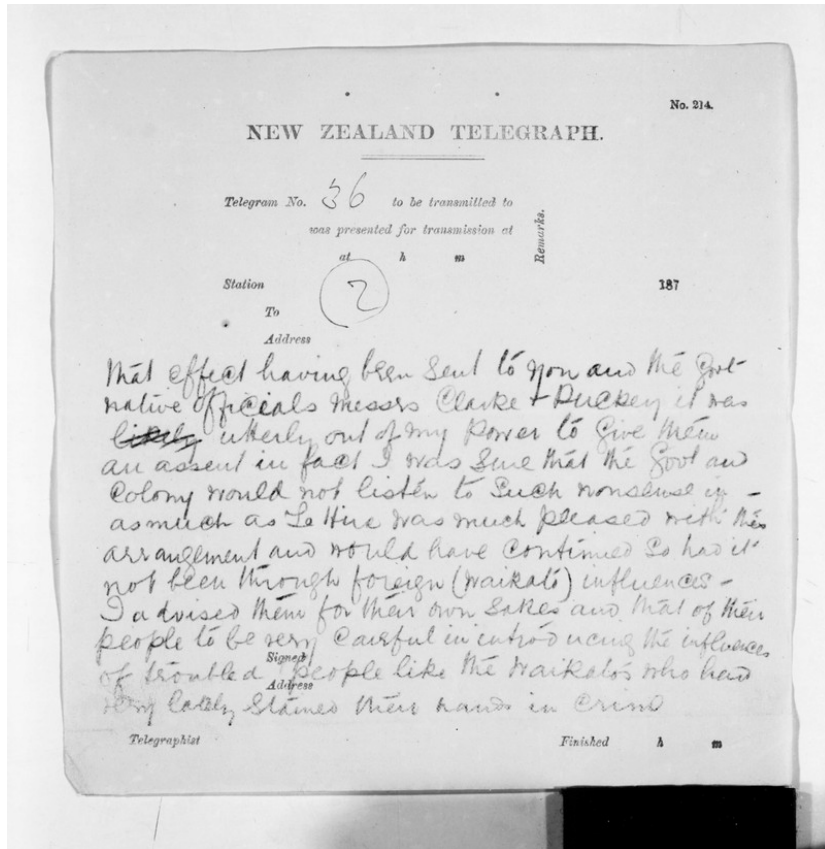 No. 214.
NEW ZEALAND TELEGRAPH.
Telegram No. 36 to be transmitted to
was presented for transmission at
at h m
Remarks.
Station 187
2
To
Address
that effect having been sent to you and the Govt
native officials messrs Clarke + Puckey it was
likely utterly out of my power to give them
an assent in fact I was sure that the Govt and
Colony would not listen to such nonsense in -
asmuch as Te Hira was much pleased with this
arrangement and would have continued so had it
not been through foreign (waikato) influences -
I advised them for their own sakes and that of their
people to be very careful in introducing the influences
Signed
of troubled people like the waikatos who had
Address
very lately stained their hands in crime
Telegraphist Finished h m